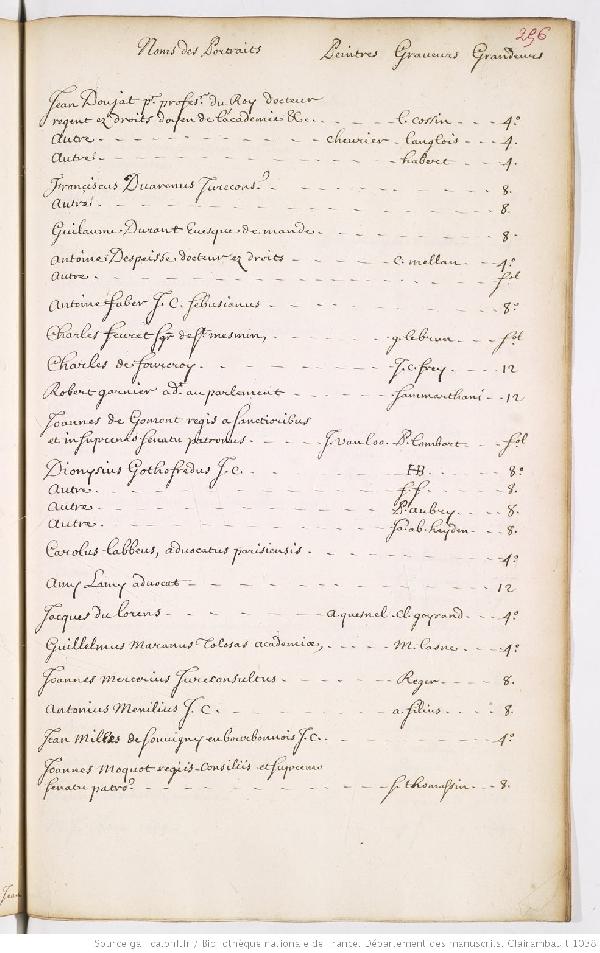 296
Noms des Portraits Peintres Graveurs Grandeurs
Jean Doujat pr. profesr. du Roy docteur
regent ez droits doyen de l'academie &c. l. cossin 4º
Autre chevrier langlois 4.
Autre habert 4.
Franciscus Duarenus Jurecons. 8.
Autre 8.
Guilaume Durant Evesque de mande 8.
Antoine Despeisse docteur ez droits c. mellan 4º
Autre fol
Antoine faber J. C. sebusianus 8º
Charles fevret sgr de st mesmin, g. lebrun fol
Charles de fourcroy J. c. frey 12
Robert garnier ad. au parlement sammarthani 12
Joannes de Gomont regis a sanctioribus
et in supremo senatu patronus J. vanloo P. lombart fol
Dionysius Gothofredus J. C. HB 8º
Autre f. f. 8.
Autre P. aubry 8.
Autre Ja: ab. heyden 8.
Carolus labbeus, advocatus parisiensis 4º
Amy Lamy advocat 12
Jacques du lorens a. quesnel Cl. goyrand 4º
Guillelmus Maranus Tolosas academiae, M. lasne 4º
Joannes mercerius Jureconsultus Reger 8.
Antonius Monilius J. C. a. filius 8.
Jean Milles de souvigny en bourbonnois J. C. 4º
Joannes Moquot regiis Consiliis et supremo
senatu patro. s. thomassin 8.
Jean
Source gallica.bnf.fr / Bibliothèque nationale de France. Département des manuscrits. Clairambault 1038